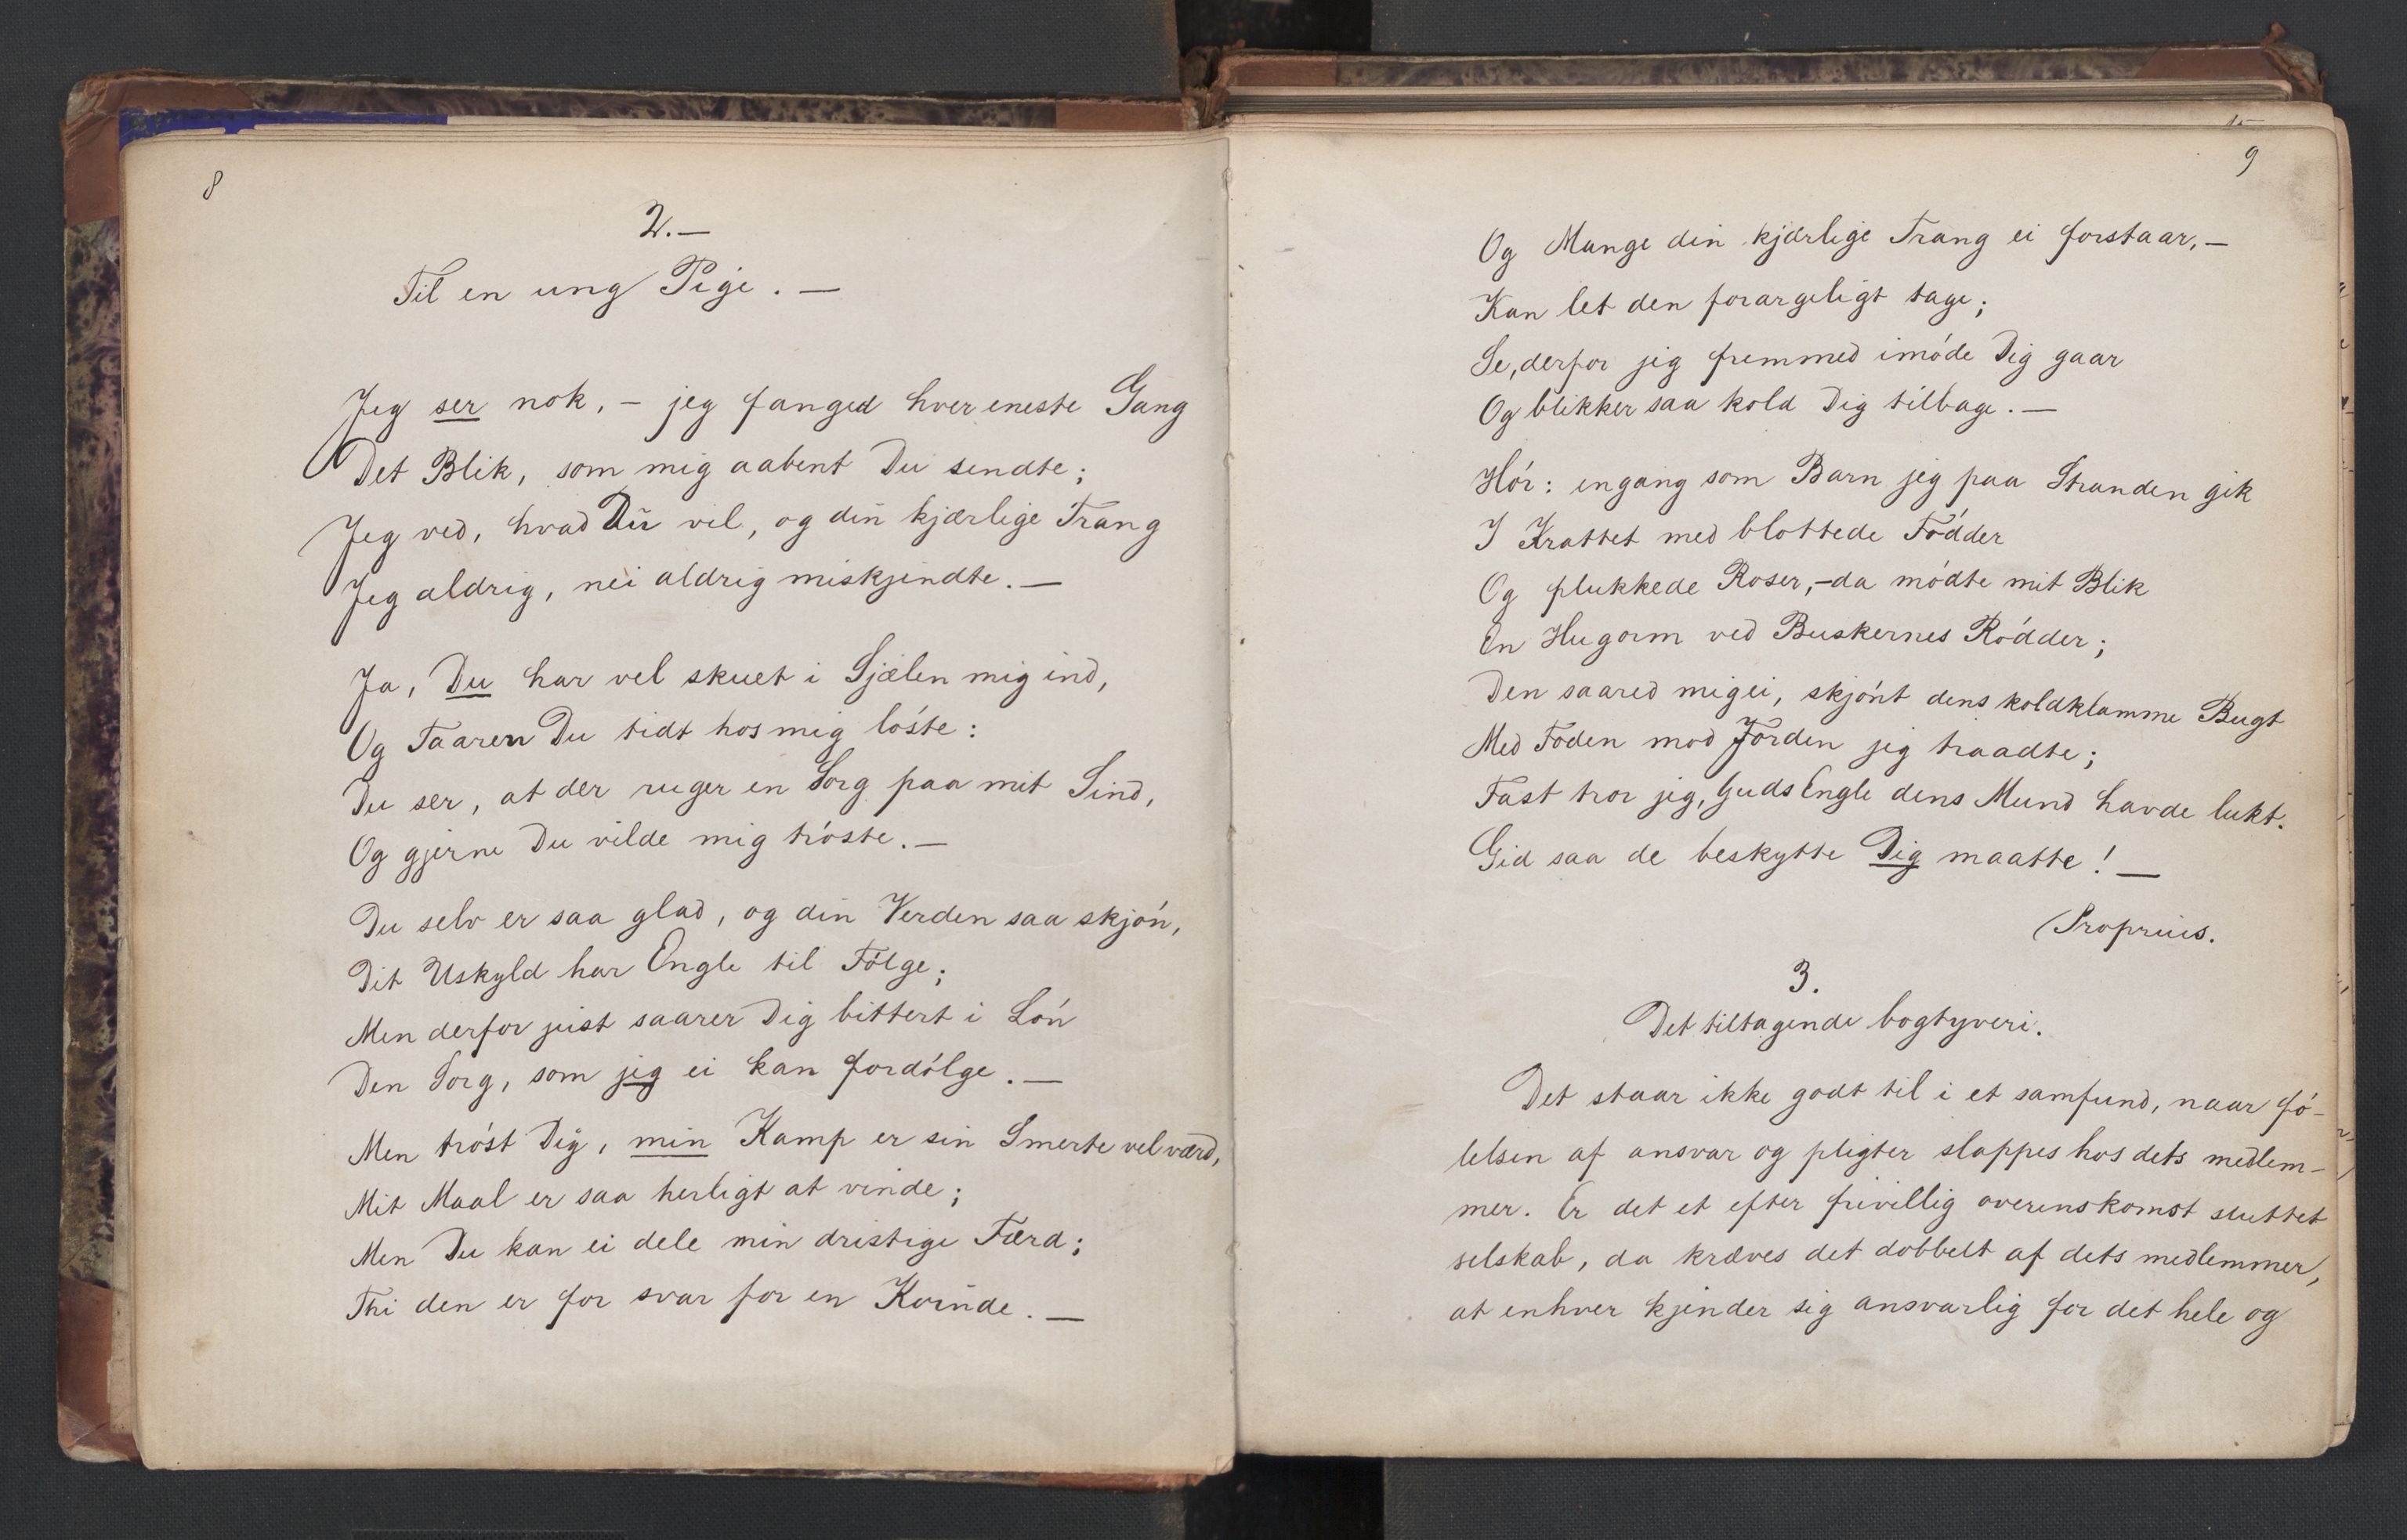 8
2.—
Til en ung Pige. —
Jeg ser nok, – jeg fanged hver eneste Gang
Det Blik, som mig aabent Du sendte;
Jeg ved, hvad Du vil, og din kjærlige Trang
Jeg aldrig, nei aldrig miskjendte. —
Ja, Du har vel skuet i Sjælen mig ind,
Og Taaren Du tidt hos mig løste:
Du ser, at der ruger en Sorg paa mit Sind,
Og gjerne Du vilde mig trøste. —
Du selv er saa glad, og din Verden saa skjøn,
Dit Uskyld har Engle til Følge;
Men derfor just saarer Dig bittert i Løn
Den Sorg, som jeg ei kan fordølge. —
Men trøst Dig, min Kamp er sin Smerte vel værd,
Mit Maal er saa herligt at vinde;
Men Du kan ei dele min dristige Færd;
Thi den er for svar for en Kvinde. —
9
Og Mange din kjærlige Trang ei forstaar, —
Kan let den forargeligt tage;
Se, derfor jeg fremmed imøde Dig gaar
Og blikker saa kold Dig tilbage. —
Hør: engang som Barn jeg paa Stranden gik
I Krattet med blottede Fødder
Og plukkede Roser, – da mødte mit Blik
En Hugorm ved Buskernes Rødder;
Den saared mig ei, skjønt dens koldklamme Bugt
Med Foden mod Jorden jeg traadte;
Fast tror jeg, Guds Engle dens Mund havde lukt.
Gid saa de beskytte Dig maatte! —
Proprius.
3.
Det tiltagende bogtyveri.
Det staar ikke godt til i et samfund, naar fø-
lelsen af ansvar og pligter slappes hos dets medlem-
mer. Er det et efter frivillig overenskomst sluttet
selskab, da kræves det dobbelt af dets medlemmer,
at enhver kjender sig ansvarlig for det hele og